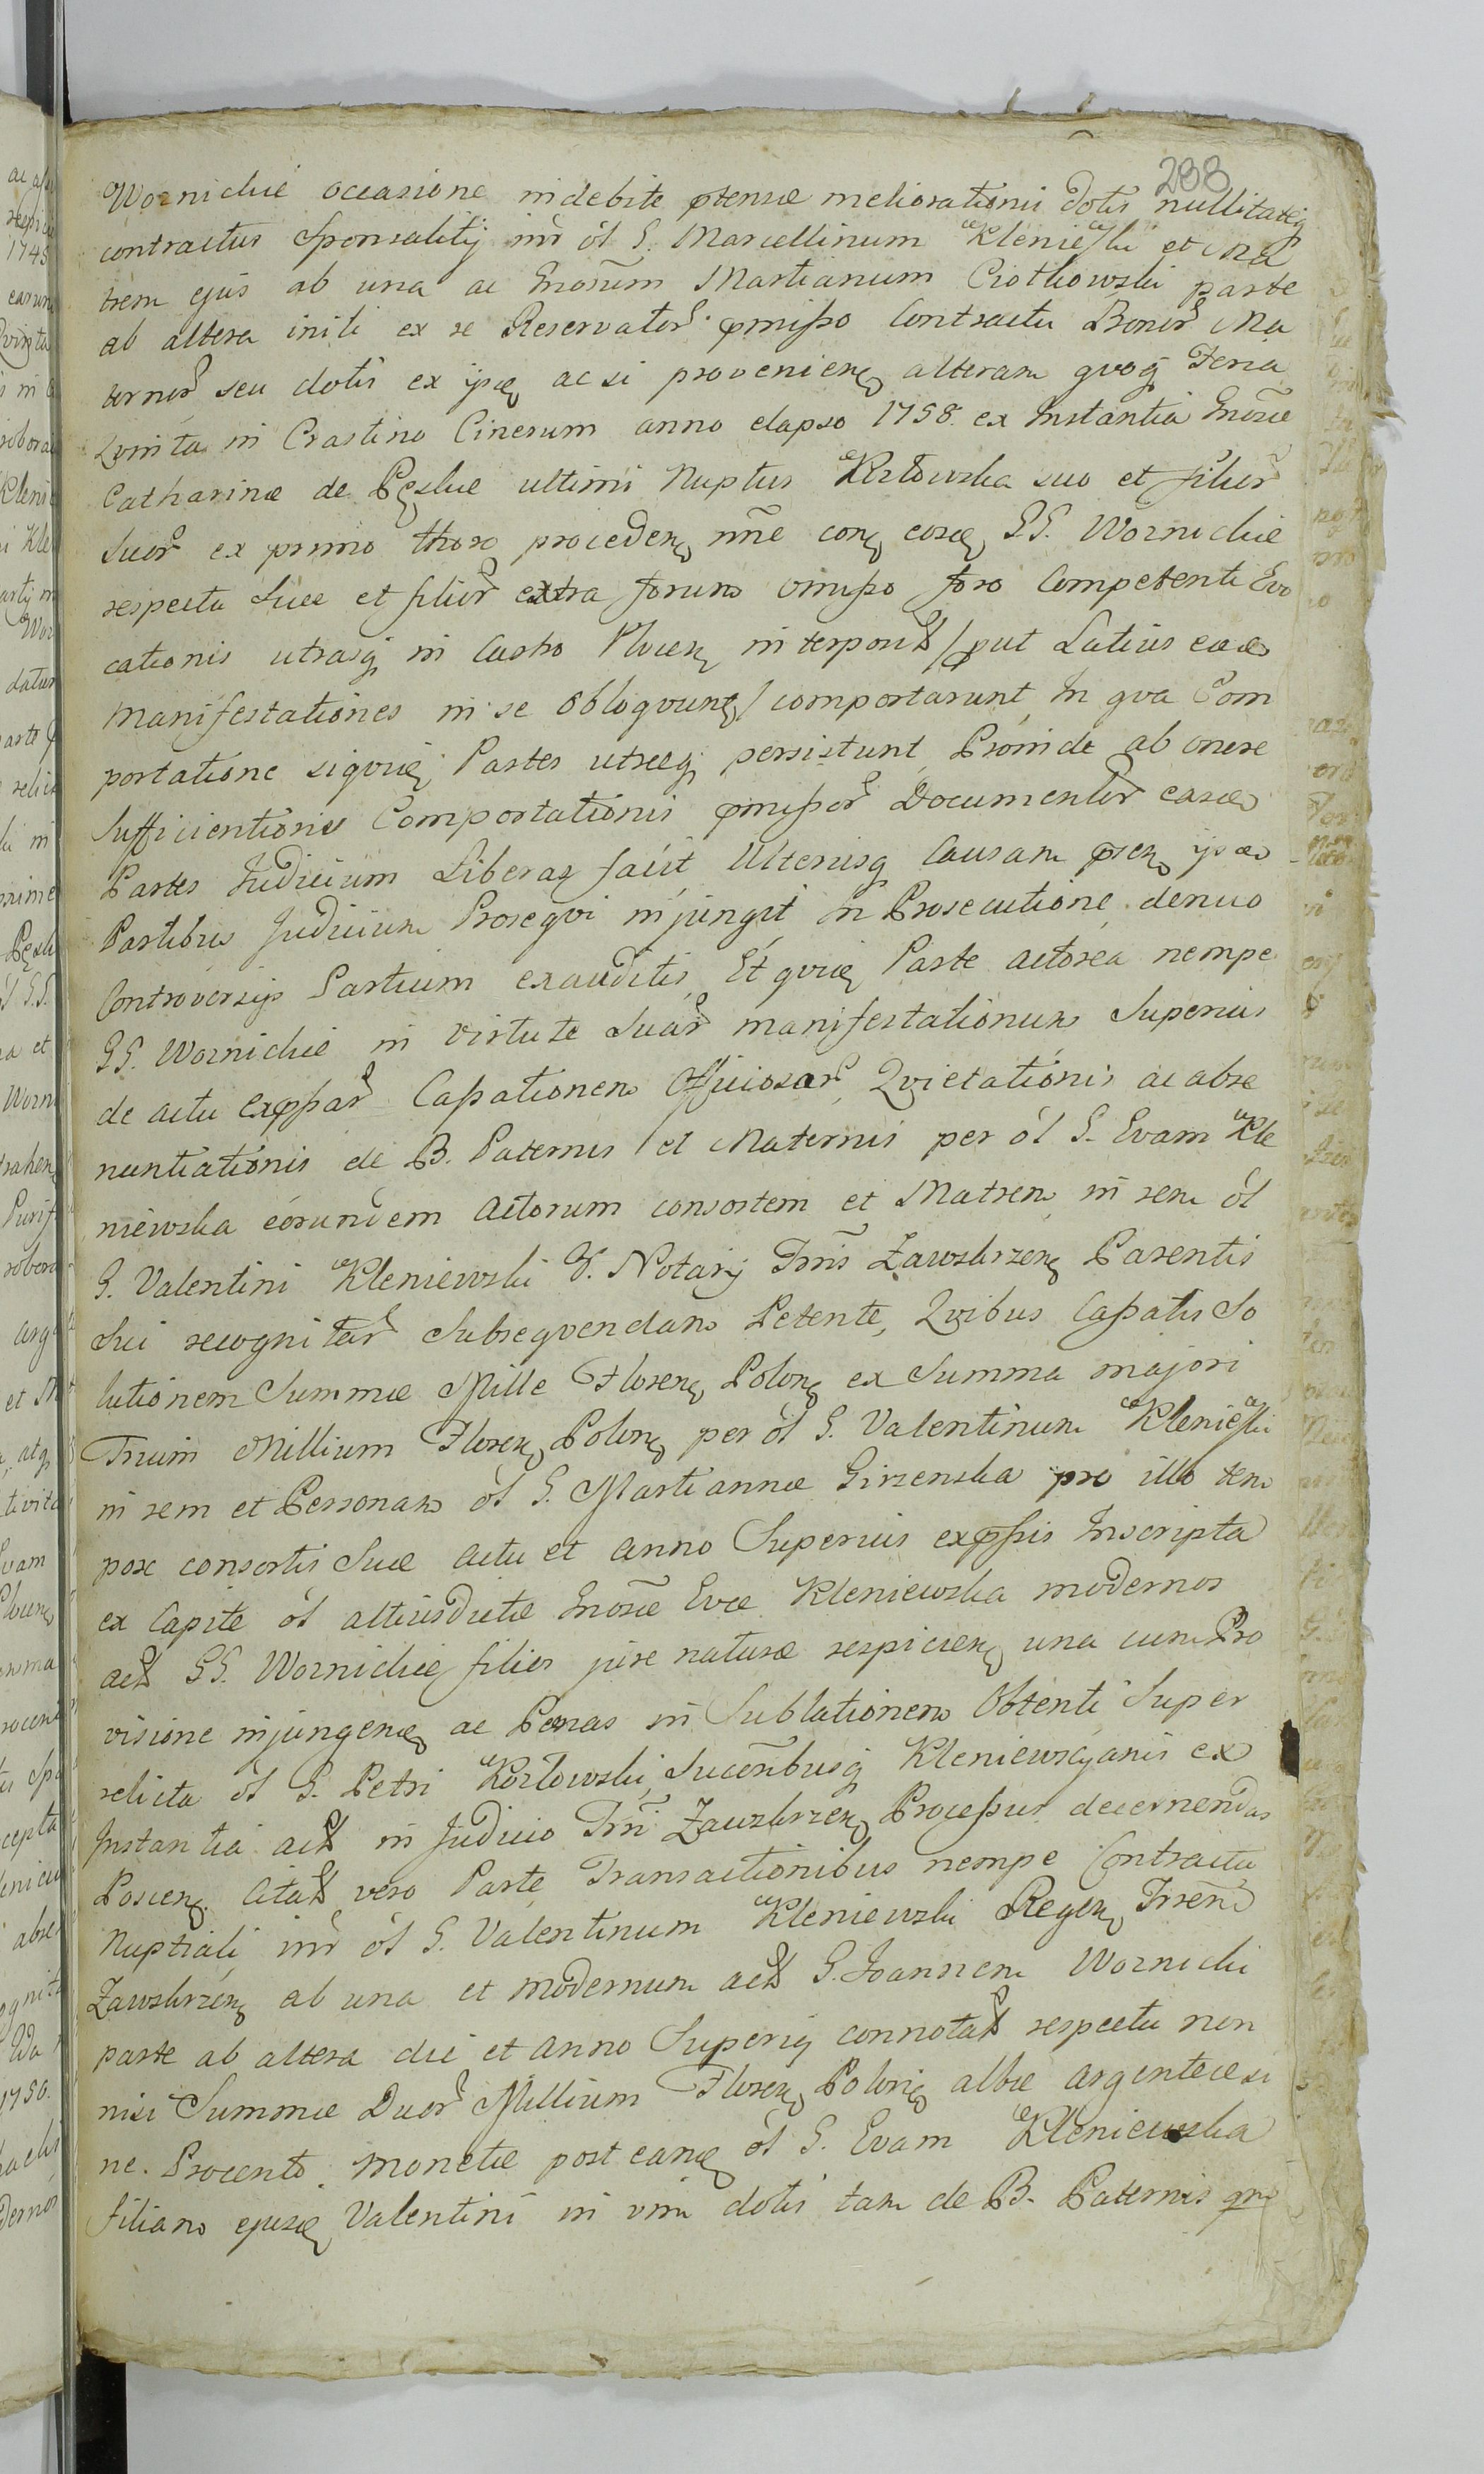 288
Wornickie occasione indebite ptensæ meliorationis dotis nullitatisq
contractus Sponsalitij inr ol G. Marcellinum Kleniewski et Ma
trem ejus ab una ac Gnosum Martianum Ciotkowski parte
ab altera initi ex se Reservator pmisso Contractu Bonor Ma
ternor seu dotis ex ijs ac si provenien alteram qvoq Feria
Qvinta in Crastino Cinerum anno elapso 1758. ex Instantia Gnosæ
Catharinæ de ultimi Nuptus Kozłowska suo et filior
Suor ex primo thoro proceden nne con eosd GG. Wornickie
respectu Suæ et filior extra forum omisso foro Competenti Evo
cationis utrasq in Castro Plocen interposit / put Latius eæd
manifestationes in se obloqvunt / comportarunt, In qva Com
portatione siqvid Partes utræq persistunt, Proinde ab onere
Sufficientioris Comportationis pmissor Documentor easd
Partes Judicium Liberas facit Ulteriusq Causam psen ijsd
Partibus Judicium Proseqvi injungit In Prosecutione denuo
Controversijs Partium exauditis, Et qvid Parte actorea nempe
GG. Wornickie in virtute Suar manifestationum Superius
de actu expssar Cassationem Officiosar, Qvietationis ac abre
nuntiationis de B. Paternis et Maternis per ol G. Evam Kle
niewska eorundem Actorum consortem et Matrem, in rem ol
G. Valentini Kleniewski V. Notarij Trris Zawskrzen Parentis
Sui recognitar Subseqvendam Petente, Qvibus Cassatis So
lutionem Summæ Mille Floren Polon ex Summa majori
Trium Millium Floren Polon per ol G. Valentinum Kleniewski
in rem et Personam ol G. Martiannæ Girzenska pro illo tem
pore consortis Suæ actu et anno Superius expssis Inscripta
ex Capite ol altiusdictæ Gnosæ Evæ Kleniewska modernos
act GG. Wornickie filios jure naturæ respicien una cum Pro
visione injungend ac Penas in Sublationem Obtenti Super
relicta ol G. Petri Kozłowski, Succoribusq Kleniewscyanis ex
Instantia act in Judicio Trri Zawskrzen Processus decernendas
Poscen. Citat vero Parte Transactionibus nempe Contractu
Nuptiali inr ol G. Valentinum Kleniewski Regen Trren
Zawskrzen ab una et modernum act G. Joannem Wornicki
parte ab altera die et anno Superiq connotat respectu non
nisi Summæ Duor Millium Floren Polon albæ argenteæ si
ne. Procento monetæ post eand ol G. Evam Kleniewska
filiam ejusd Valentini in vim dotis tam de B. Paternis qm